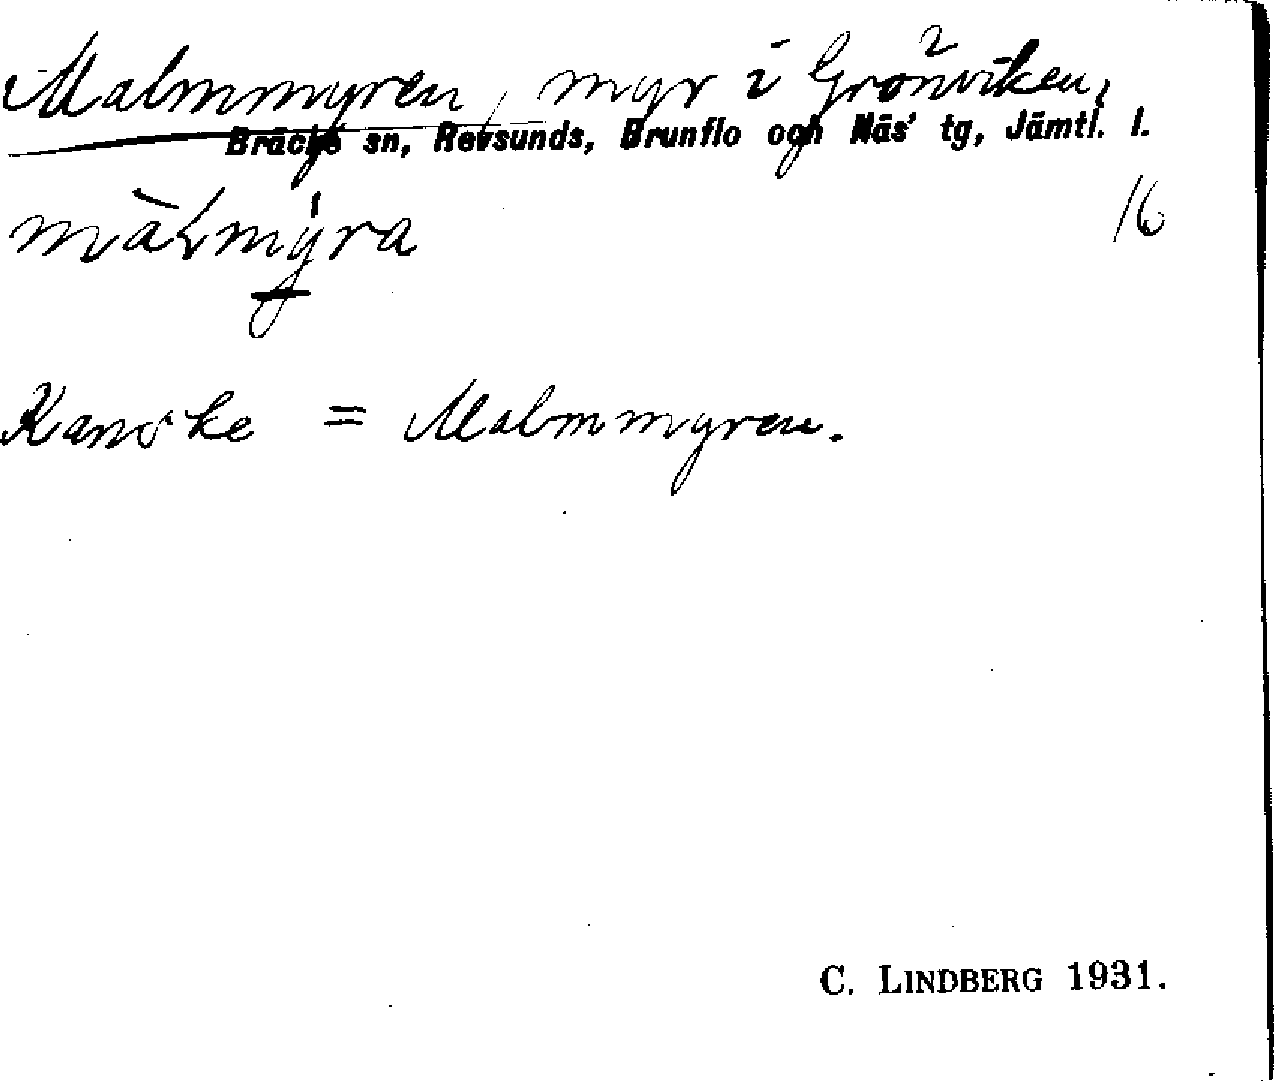 Malmmyren, myr i Grönviken,
Bräcke sn, Revsunds, Brunflo och Näs' tg, Jämtl. l.
16
Kanske = Malmmyren.
C. LINDBERG 1931.